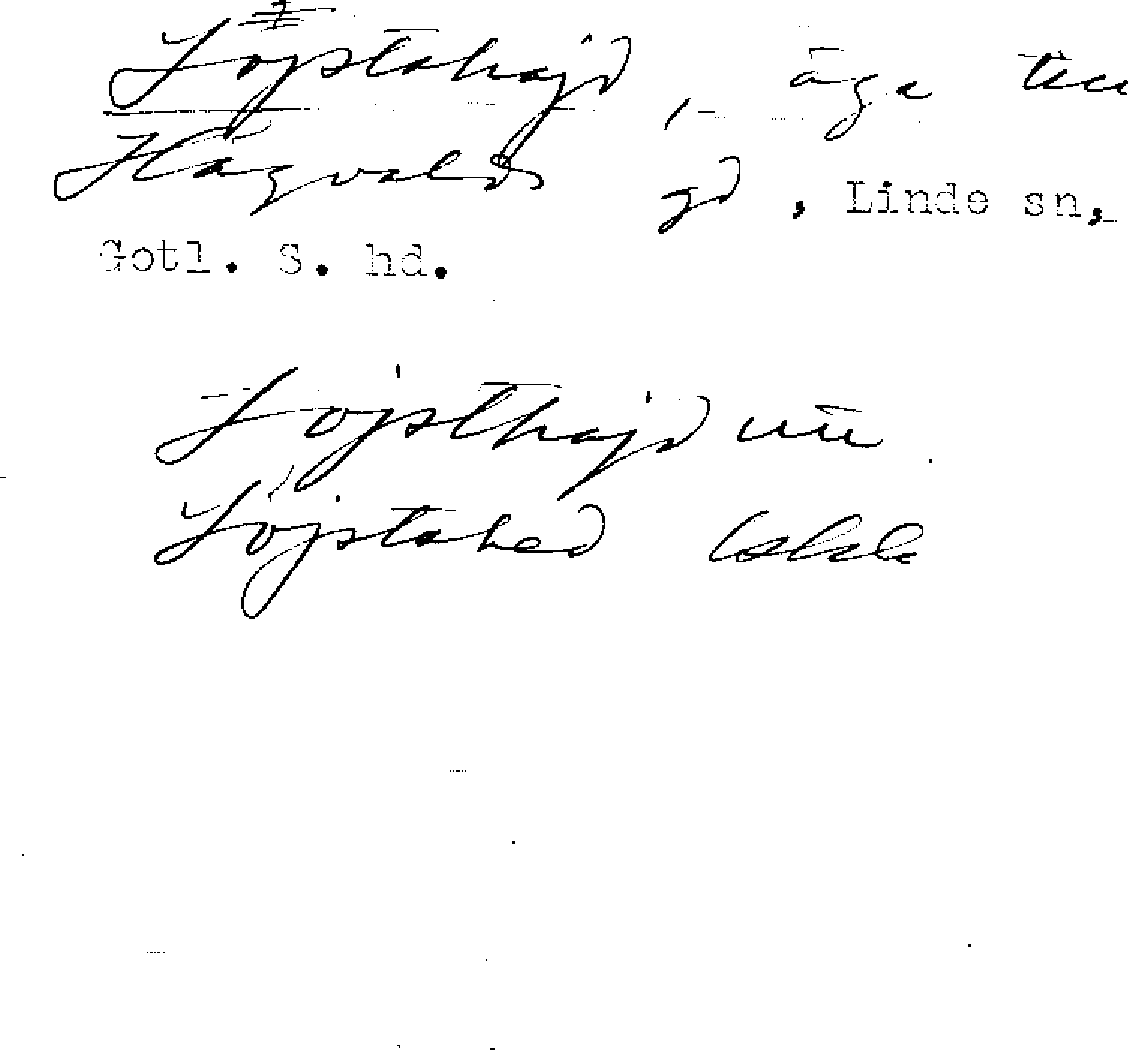 Lojstahajd, äga till
Hägvalds gd, Linde sn,
Gotl. S. hd.
Lojsthajd
Lojstahed